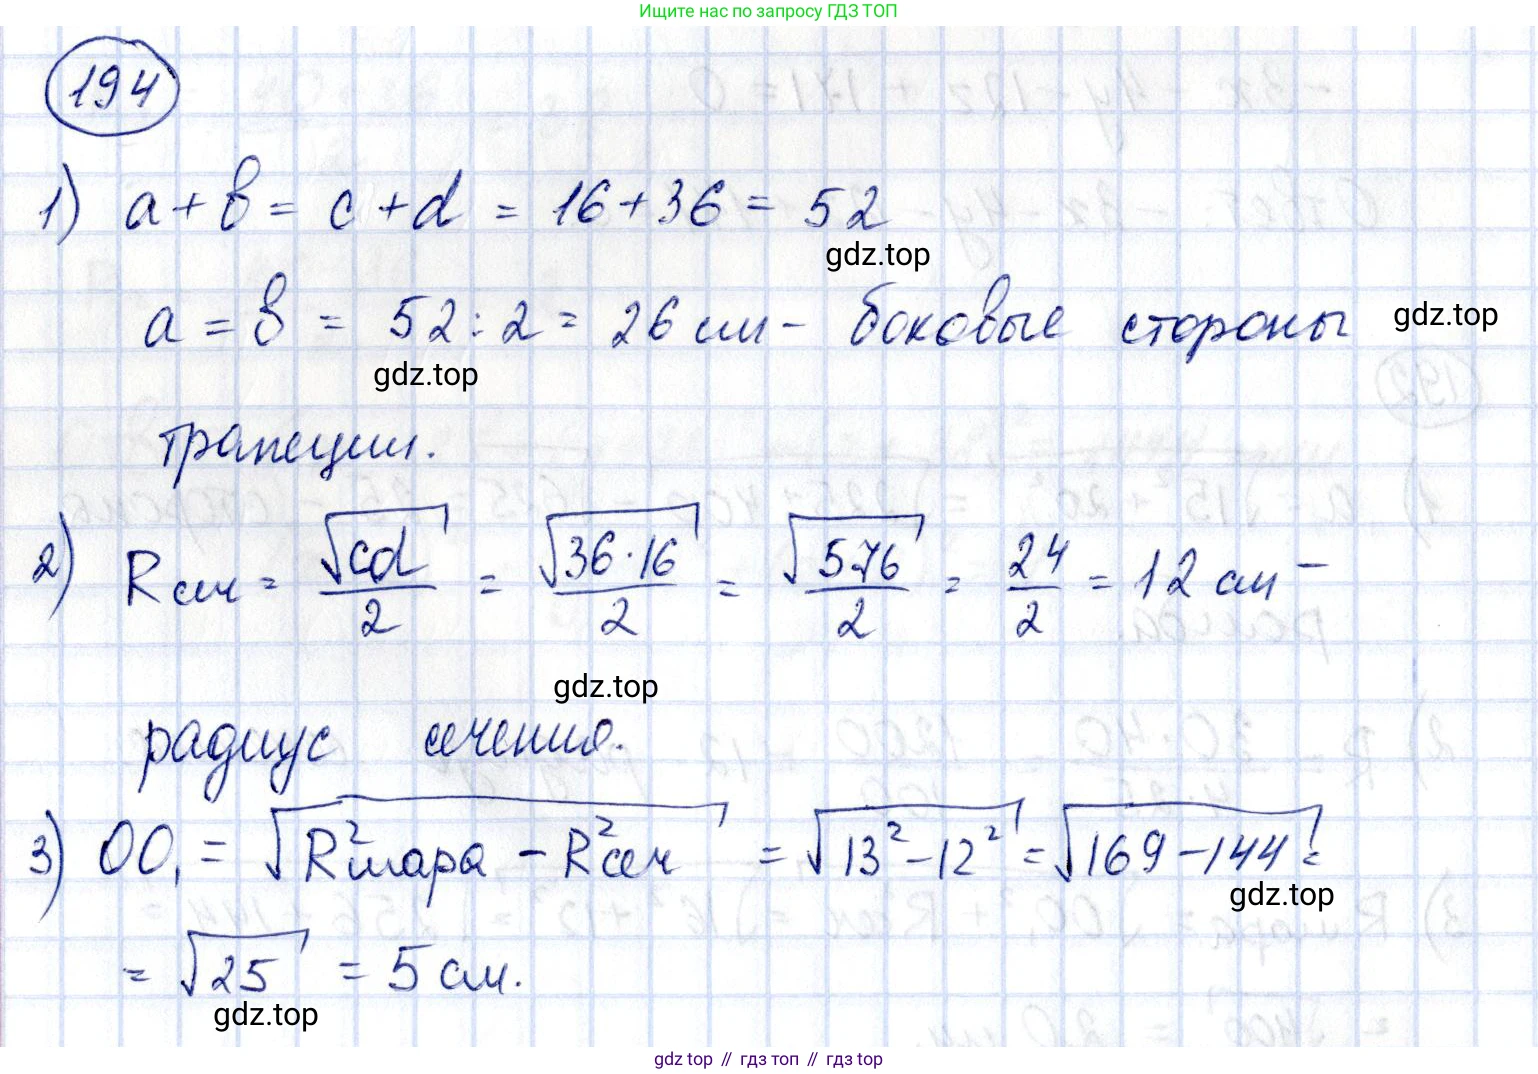 Ищите нас по запросу ГДЗ ТОП
194
1) a + b = c + d = 16 + 36 = 52
gdz.top
a = b = 52 : 2 = 26 см - боковые стороны
gdz.top
gdz.top
трапеции.
2) Rсеч = √cd / 2 = √36·16 / 2 = √576 / 2 = 24 / 2 = 12 см -
gdz.top
радиус сечения.
3) OO₁ = √R²шара - R²сеч = √13² - 12² = √169 - 144 =
gdz.top
= √25 = 5 см.
gdz.top
gdz top // гдз топ // gdz top